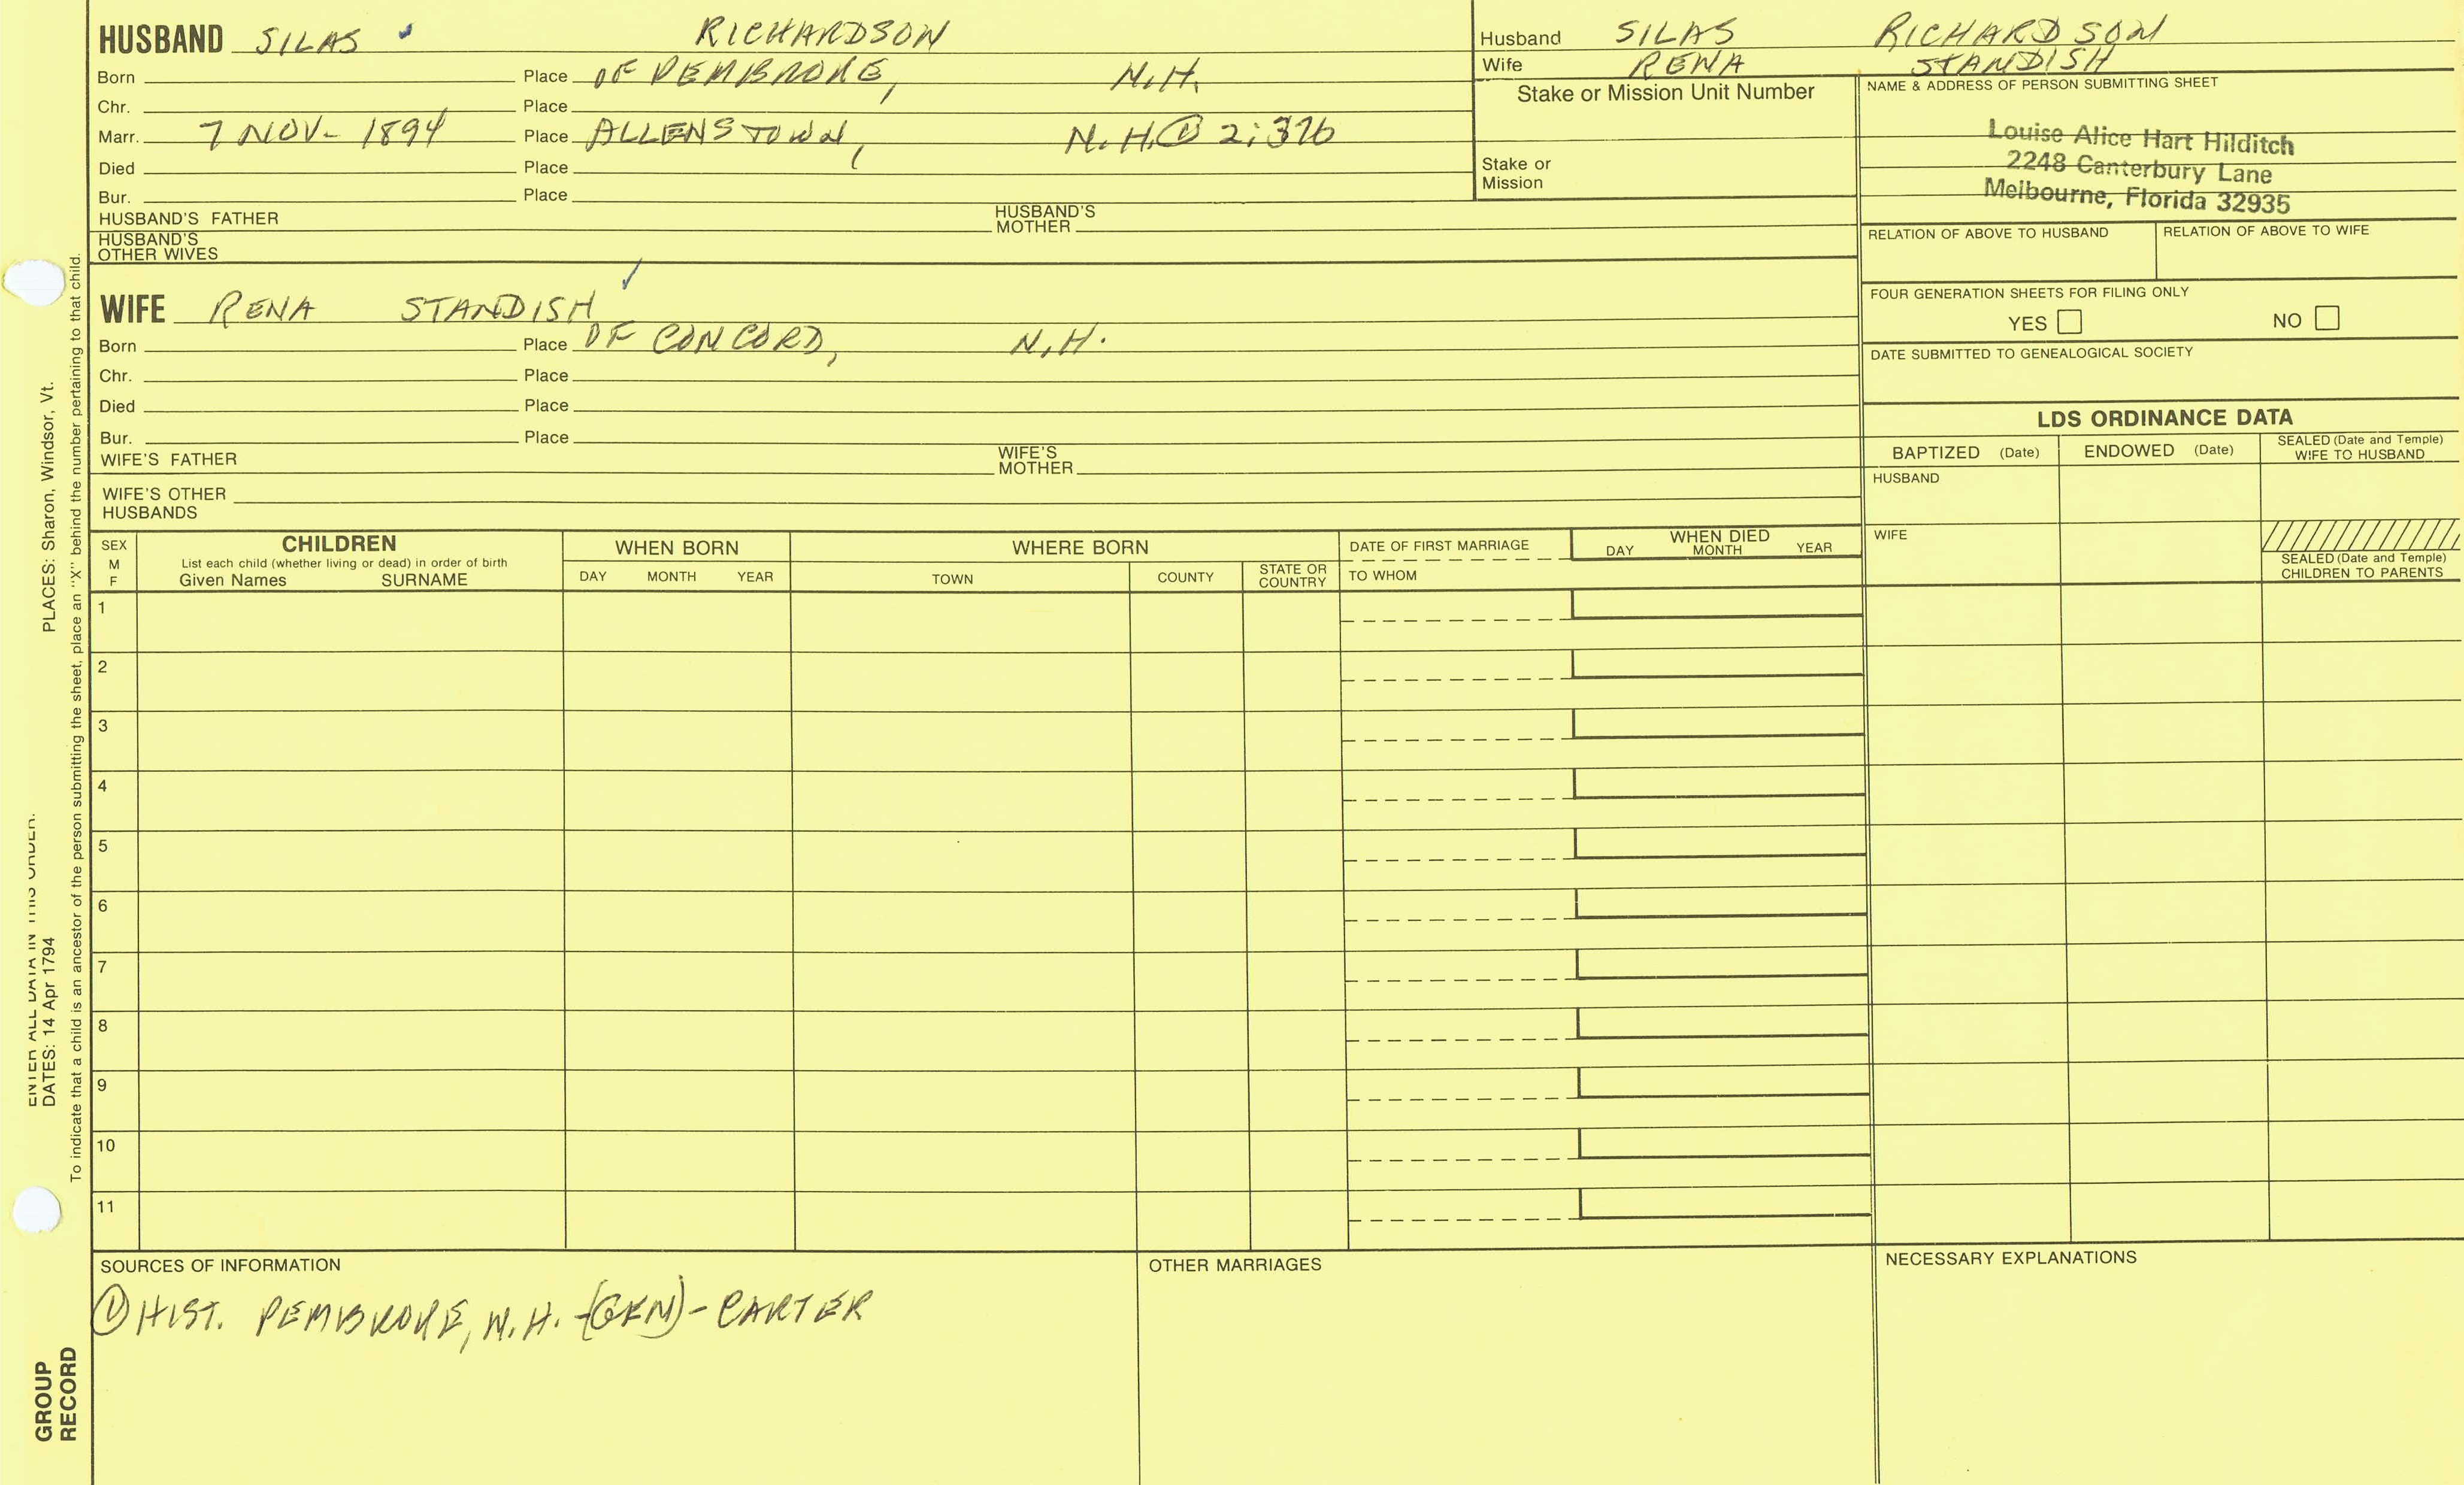 HUSBAND SILAS RICHARDSON
Born Place OF PEMBROKE, N.H.
Chr. Place
Marr. 7 NOV- 1894 Place ALLENSTOWN, N.H. ① 2:376
Died Place
Bur. Place
HUSBAND'S FATHER HUSBAND'S MOTHER
HUSBAND'S
OTHER WIVES
Husband SILAS RICHARDSON
Wife RENA STANDISH
Stake or Mission Unit Number
Stake or
Mission
NAME & ADDRESS OF PERSON SUBMITTING SHEET
Louise Alice Hart Hilditch
2248 Canterbury Lane
Melbourne, Florida 32935
RELATION OF ABOVE TO HUSBAND RELATION OF ABOVE TO WIFE
FOUR GENERATION SHEETS FOR FILING ONLY
YES NO
DATE SUBMITTED TO GENEALOGICAL SOCIETY
WIFE RENA STANDISH
Born Place OF CONCORD, N.H.
Chr. Place
Died Place
Bur. Place
WIFE'S FATHER WIFE'S MOTHER
WIFE'S OTHER
HUSBANDS
LDS ORDINANCE DATA
BAPTIZED (Date) ENDOWED (Date) SEALED (Date and Temple)
WIFE TO HUSBAND
HUSBAND
WIFE
SEALED (Date and Temple)
CHILDREN TO PARENTS
SEX
M
F
CHILDREN
List each child (whether living or dead) in order of birth
Given Names SURNAME
WHEN BORN
DAY MONTH YEAR
WHERE BORN
TOWN COUNTY STATE OR
COUNTRY
DATE OF FIRST MARRIAGE
TO WHOM
WHEN DIED
DAY MONTH YEAR
1
2
3
4
5
6
7
8
9
10
11
SOURCES OF INFORMATION
① HIST. PEMBROKE, N.H. -(GEN)- CARTER
OTHER MARRIAGES
NECESSARY EXPLANATIONS
ENTER ALL DATA IN THIS ORDER:
DATES: 14 Apr 1794 PLACES: Sharon, Windsor, Vt.
To indicate that a child is an ancestor of the person submitting the sheet, place an "X" behind the number pertaining to that child.
GROUP
RECORD